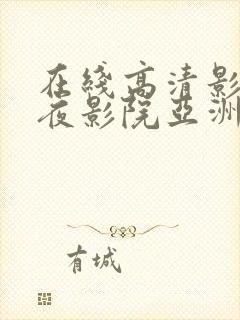 在綫高清影
夜影院亞洲
有城